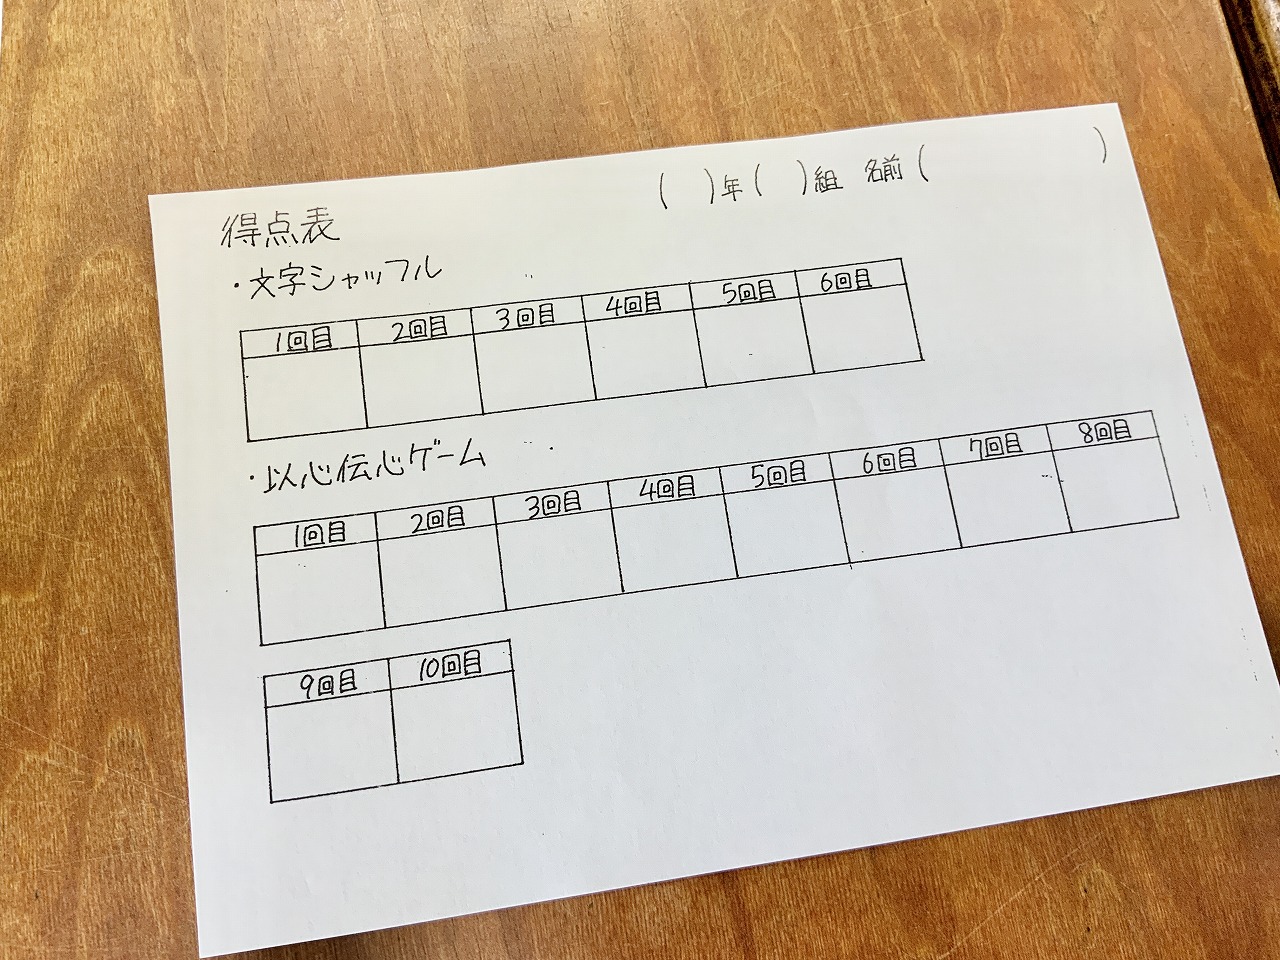 ( )年( )組 名前( )
得点表
・文字シャッフル
1回目 2回目 3回目 4回目 5回目 6回目
・以心伝心ゲーム
1回目 2回目 3回目 4回目 5回目 6回目 7回目 8回目
9回目 10回目